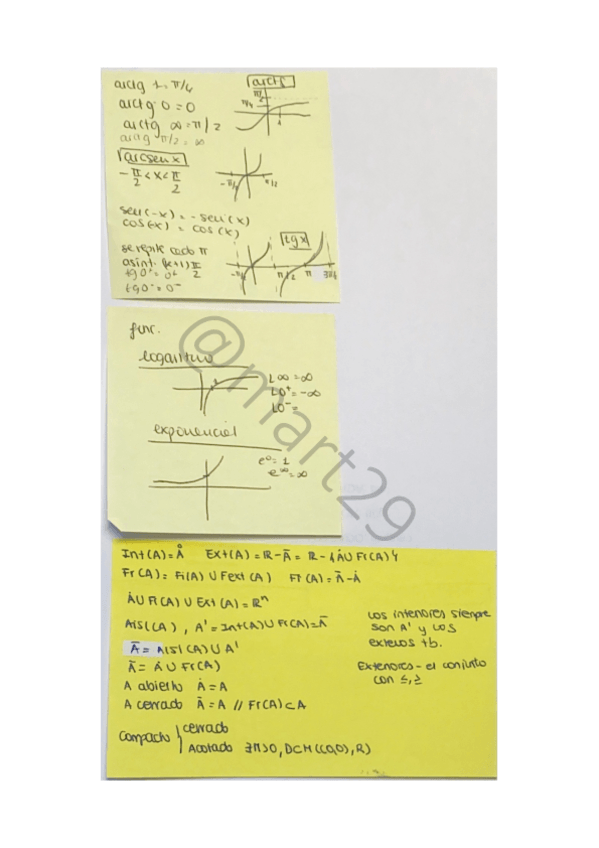 arctg 1 = π/4
arctg 0 = 0
arctg ∞ = π/2
arctg π/2 = ∞
arctg
π/2
π/4
1
arcsen x
-π/2 < x < π/2
-π/2 π/2
sen(-x) = -sen(x)
cos(-x) = cos(x)
se repite cada π
asint. (k+1)π/2
tg 0⁺ = 0⁺
tg 0⁻ = 0⁻
tg x
-π/2 π/2 π
func.
logaritmo
L∞ = ∞
L0⁺ = -∞
L0⁻ =
exponencial
e⁰ = 1
e^∞ = ∞
@mart29
Int(A) = Å Ext(A) = ℝ - Ā = ℝ - {Å ∪ Fr(A)}
Fr(A) = Fi(A) ∪ Fext(A) Fr(A) = Ā - Å
Å ∪ Fr(A) ∪ Ext(A) = ℝⁿ
Aisl(A), A' = Int(A) ∪ Fr(A) = Ā
Ā = Aisl(A) ∪ A'
Ā = Å ∪ Fr(A)
A abierto Å = A
A cerrado Ā = A // Fr(A) ⊂ A
Compacto { cerrado
Acotado ∃M>0, D⊂M((0,0), R)
Los interiores siempre
son A' y los
exteriores tb.
Exteriores - el conjunto
con ≤, ≥